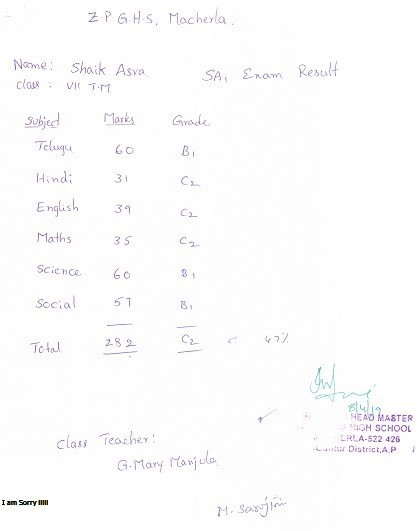 Z.P G.H.S, Macherla.
Name: Shaik Asra
SA1 Exam Result
Class : VII T.M
Subject Marks Grade
Telugu 60 B1
Hindi 31 C2
English 39 C2
Maths 35 C2
Science 60 B1
Social 57 B1
Total 282 C2 47%
8/4/19
HEAD MASTER
HIGH SCHOOL
ERLA-522 426
Guntur District,A.P
Class Teacher:
G. Mary Manjula
I am Sorry lllll
M. Sarojini